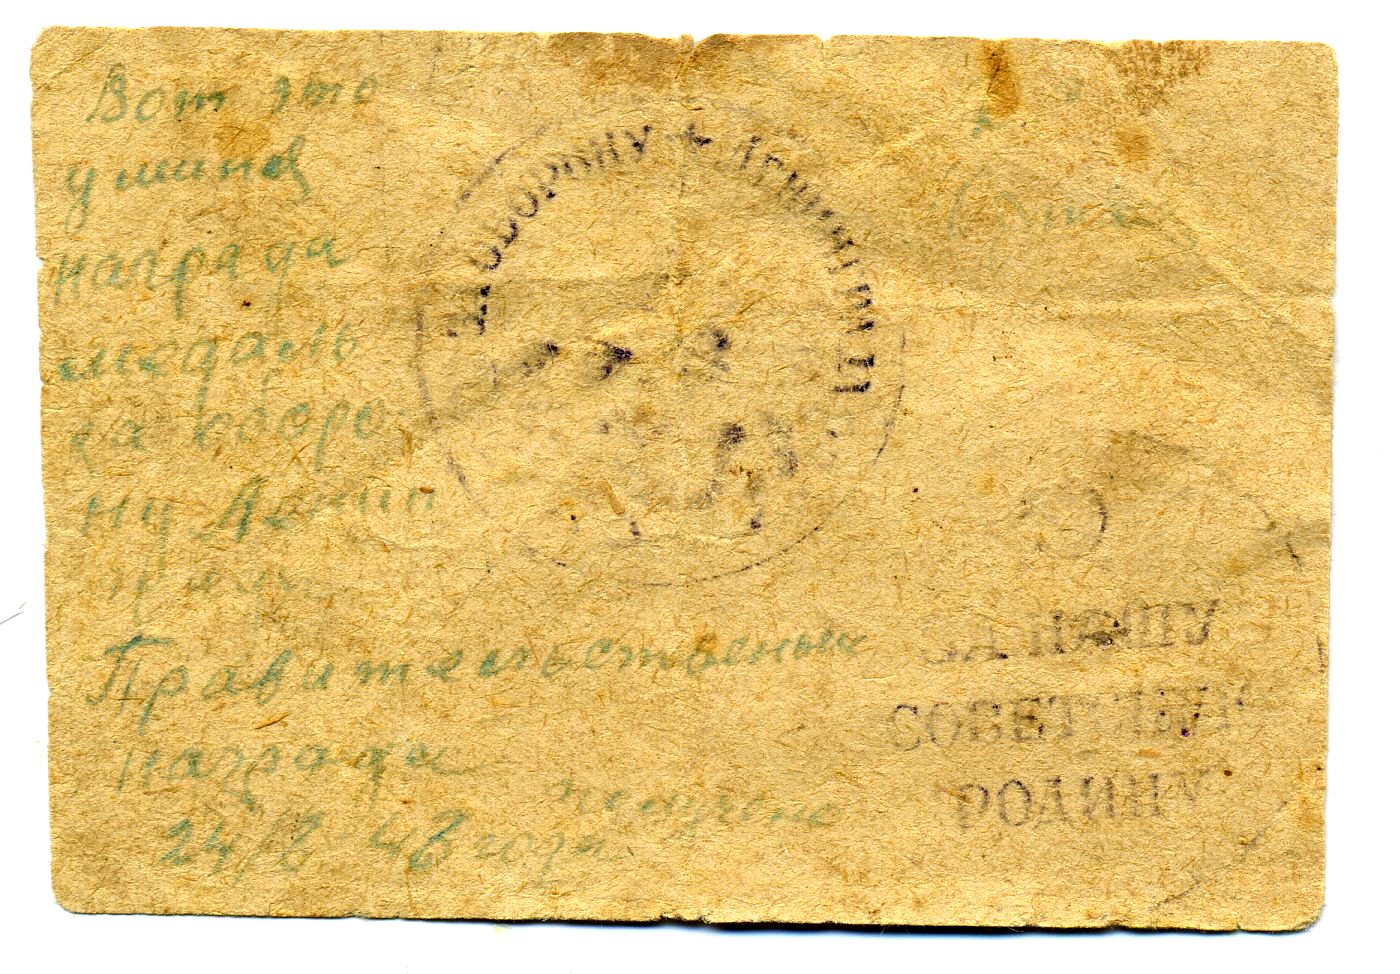 Вот это
у меня
награда
медаль
за оборо
ну Ленин
града
Правительственная
награда
получена
24/8 43 года
ЗА ОБОРОНУ ★ ЛЕНИНГРАДА
ЗА НАШУ
СОВЕТСКУЮ
РОДИНУ